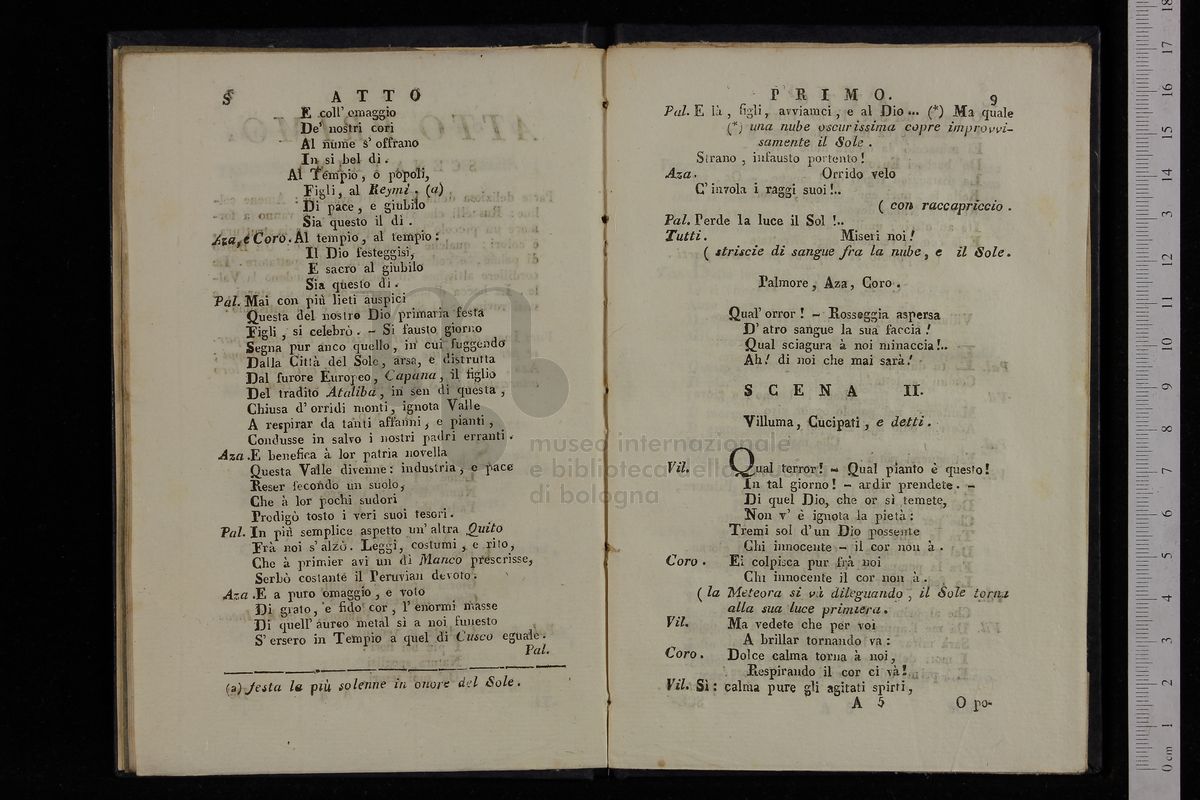 8 ATTO
E coll' omaggio
De' nostri cori
Al nume s' offrano
In si bel dì.
Al Tempio, o popoli,
Figli, al Reymi. (a)
Di pace, e giubilo
Sia questo il dì.
Aza, e Coro. Al tempio, al tempio:
Il Dio festeggisi,
E sacro al giubilo
Sia questo dì.
Pal. Mai con più lieti auspici
Questa del nostro Dio primaria festa
Figli, si celebrò. - Si fausto giorno
Segna pur anco quello, in cui fuggendo
Dalla Città del Sole, arsa, e distrutta
Dal furore Europeo, Capana, il figlio
Del tradito Ataliba, in sen di questa,
Chiusa d' orridi monti, ignota Valle
A respirar da tanti affanni, e pianti,
Condusse in salvo i nostri padri erranti.
Aza. E benefica à lor patria novella
Questa Valle divenne: industria, e pace
Reser fecondo un suolo,
Che à lor pochi sudori
Prodigò tosto i veri suoi tesori.
Pal. In più semplice aspetto un' altra Quito
Frà noi s' alzò. Leggi, costumi, e rito,
Che à primier avi un dì Manco prescrisse,
Serbò costante il Peruvian devoto.
Aza. E a puro omaggio, e voto
Di grato, e fido cor, l' enormi masse
Di quell' aureo metal sì a noi funesto
S' ersero in Tempio a quel di Cusco eguale.
Pal.
(a) festa la più solenne in onore del Sole.
PRIMO. 9
Pal. E là, figli, avviamci, e al Dio ... (*) Ma quale
(*) una nube oscurissima copre improvvi-
samente il Sole.
Strano, infausto portento!
Aza. Orrido velo
C' invola i raggi suoi!..
( con raccapriccio.
Pal. Perde la luce il Sol!..
Tutti. Miseri noi!
( striscie di sangue fra la nube, e il Sole.
Palmore, Aza, Coro.
Qual' orror! - Rosseggia aspersa
D' atro sangue la sua faccia!
Qual sciagura à noi minaccia!..
Ah! di noi che mai sarà!
SCENA II.
Villuma, Cucipatì, e detti.
Vil. Qual terror! - Qual pianto è questo!
In tal giorno! - ardir prendete. -
Di quel Dio, che or sì temete,
Non v' è ignota la pietà:
Tremi sol d'un Dio possente
Chi innocente - il cor non à.
Coro. Ei colpisca pur frà noi
Chi innocente il cor non à.
( la Meteora si và dileguando, il Sole torna
alla sua luce primiera.
Vil. Ma vedete che per voi
A brillar tornando va:
Coro. Dolce calma torna à noi,
Respirando il cor ci và!
Vil. Sì: calma pure gli agitati spirti,
A 5 O po-
museo internazionale
e biblioteca della
di bologna
0 cm 1 2 3 4 5 6 7 8 9 10 11 12 13 14 15 16 17 18